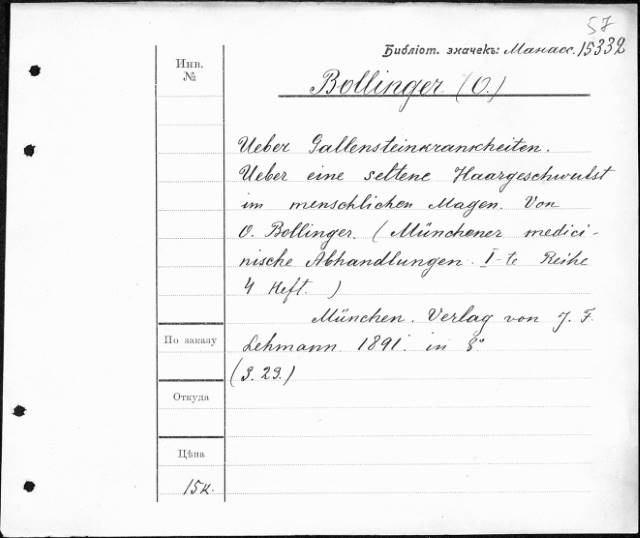 57
Библіот. значекъ: Манасс. 15332
Инв.
№
Bollinger (O.)
Ueber Gallensteinkrankheiten.
Ueber eine seltene Haargeschwulst
im menschlichen Magen. Von
O. Bollinger. (Münchener medici-
nische Abhandlungen. I-te Reihe
4 Heft.)
München. Verlag von J. F.
Lehmann 1891. in 8°
(S. 29.)
По заказу
Откуда
Цѣна
15к.